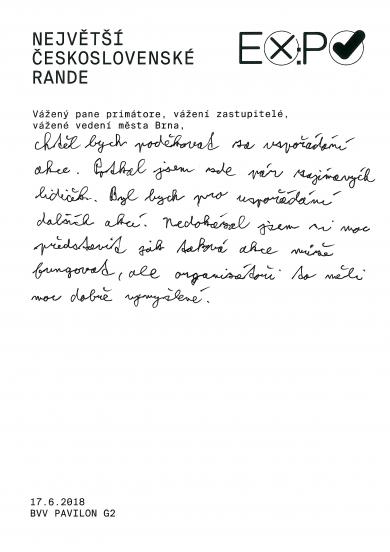 NEJVĚTŠÍ
ČESKOSLOVENSKÉ
RANDE
EXPO
Vážený pane primátore, vážení zastupitelé,
vážené vedení města Brna,
chtěl bych poděkovat za uspořádání
akce. Potkal jsem zde pár zajímavých
lidiček. Byl bych pro uspořádání
dalších akcí. Nedokázal jsem si moc
představit jak taková akce může
fungovat, ale organizátoři to měli
moc dobře vymyšlené.
17.6.2018
BVV PAVILON G2